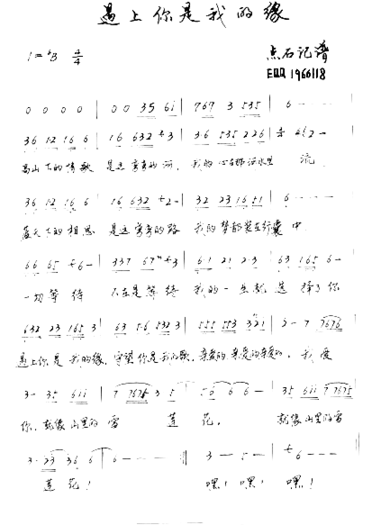 遇上你是我的缘
1=♭B 4/4
点石记谱
1966118
0 0 0 0 | 0 0 35 61 | 767 3 535 | 6 - - -
36 12 16 6 | 16 632 3 | 36 535 226 | 2 -
高山下的情歌 是这弯弯的河, 我的心在那河水里 流
36 12 16 6 | 16 632 2 - | 32 23 16 51 | 6 - - -
蓝天下的相思 是这弯弯的路 我的梦都装在行囊 中
66 65 6 - | 337 57 3 | 61 21 23 | 63 165 6 -
一切等待 不在是等待 我的一生就是 择了你
632 23 165 3 | 63 56 532 3 | 555 553 321 | 2 - 7 7676
遇上你是 我的缘, 守望你是我的歌, 亲爱的亲爱的亲爱的, 我爱
3 - 35 611 | 7 7676 3 5 | 5 6 6 - | 35 611 7 7675
你, 就像山里的雪 莲 花, 就像山里的雪
3 - 23 36 6 | 6 - - - | 3 - 5 - | 6 - - -
莲 花! 嘿! 嘿! 嘿!